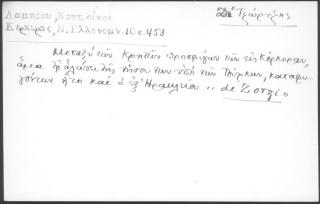 Λαμπρου, Κρητ. οίκοι
Κερκυρας, Ν. Ελληνομν. 10 σ. 453
Τζώρτζης
Μεταξύ των Κρητών προσφύγων των εις Κέρκυραν,
άμα τη αλώσει της νήσου των υπό των Τούρκων, καταφυ-
γόντων ήτο και ο εξ Ηρακλείου "de Zorzi"